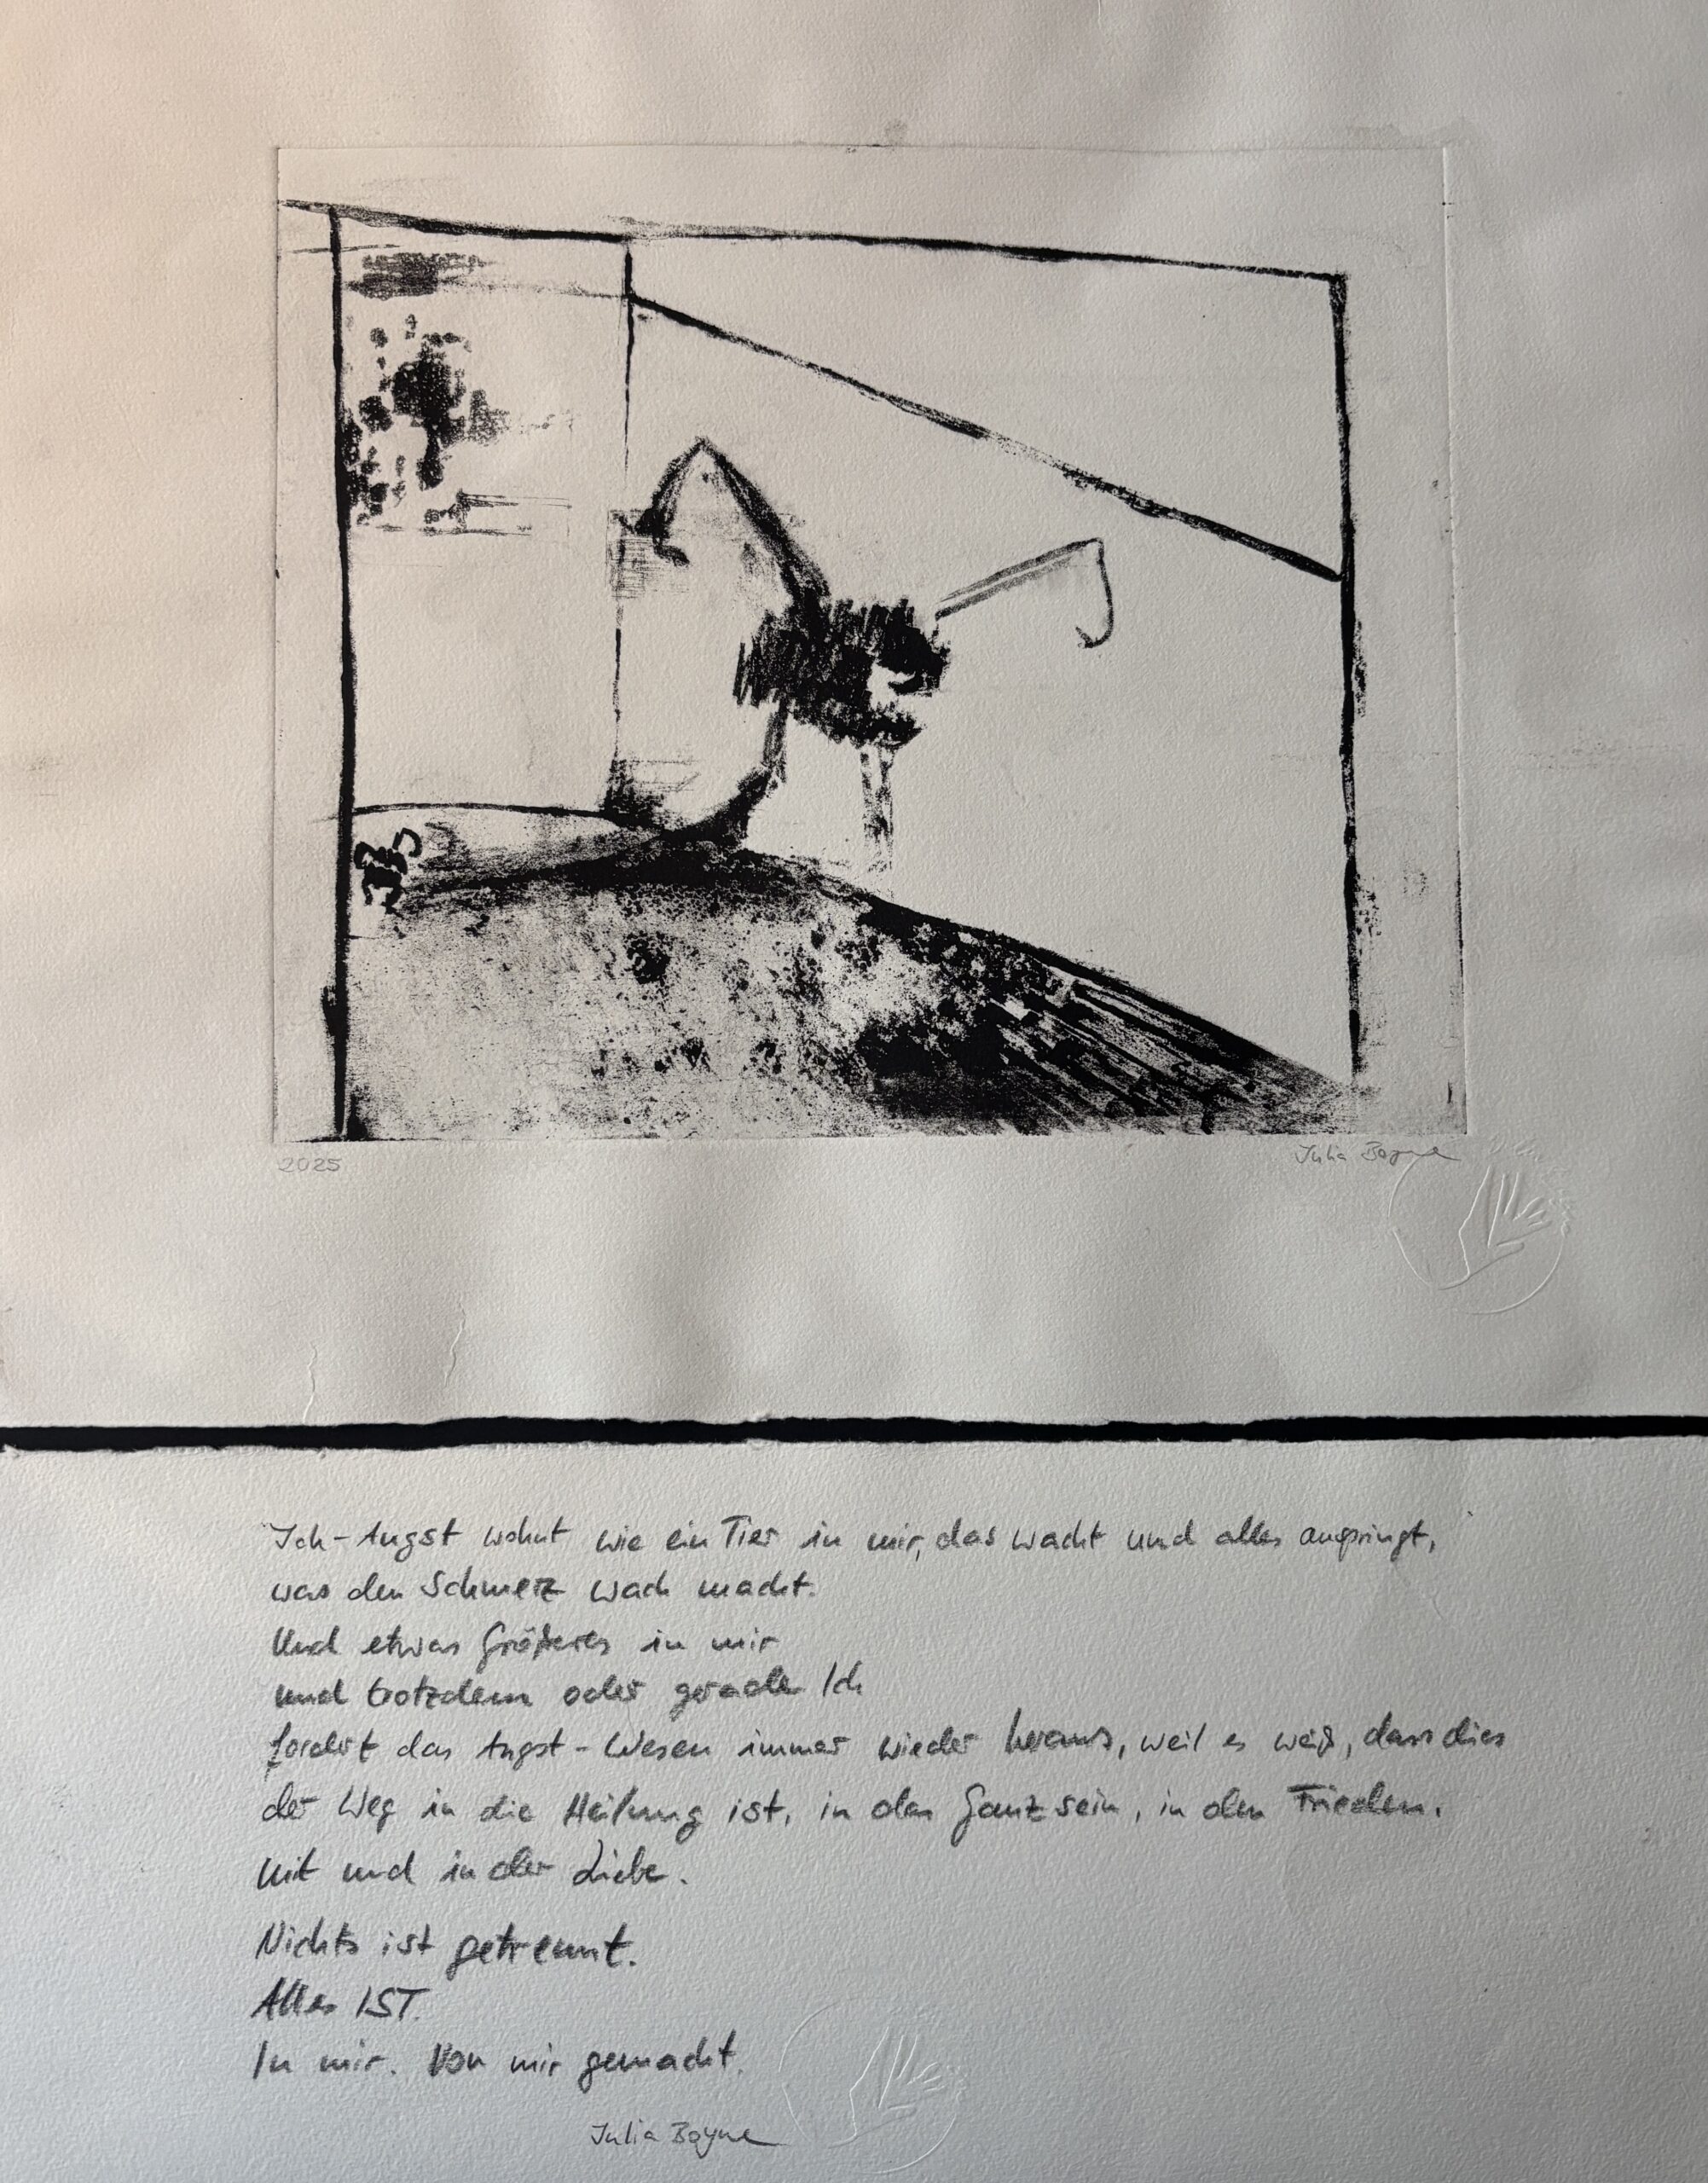 2025
Julia Bayne
Ich-Angst wohnt wie ein Tier in mir, das wacht und alles anspringt,
was den Schmerz wach macht.
Und etwas Größeres in mir
und trotzdem oder gerade Ich
fordert das Angst-Wesen immer wieder heraus, weil es weiß, dass dies
der Weg in die Heilung ist, in das Ganzsein, in den Frieden.
Mit und in der Liebe.
Nichts ist getrennt.
Alles IST.
In mir. Von mir gemacht.
Julia Bayne